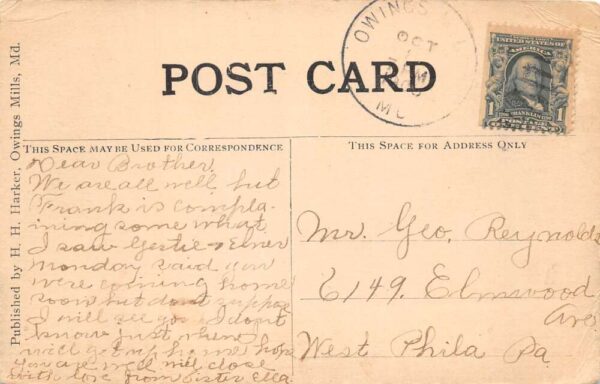 Published by H. H. Harker, Owings Mills, Md.
POST CARD
OWINGS
OCT
M
MD
UNITED STATES OF
AMERICA
1
1
FRANKLIN
THIS SPACE MAY BE USED FOR CORRESPONDENCE
Dear Brother.
We are all well but
Frank is compla-
ining some what
I saw Gertie & Elmer
Monday said you
were coming home
soon but dont suppose
I will see you I dont
know just when
will get up home hope
you are well will close
with love from Sister Ella
THIS SPACE FOR ADDRESS ONLY
Mr. Geo. Reynolds
6149. Elmwood
Ave
West Phila Pa